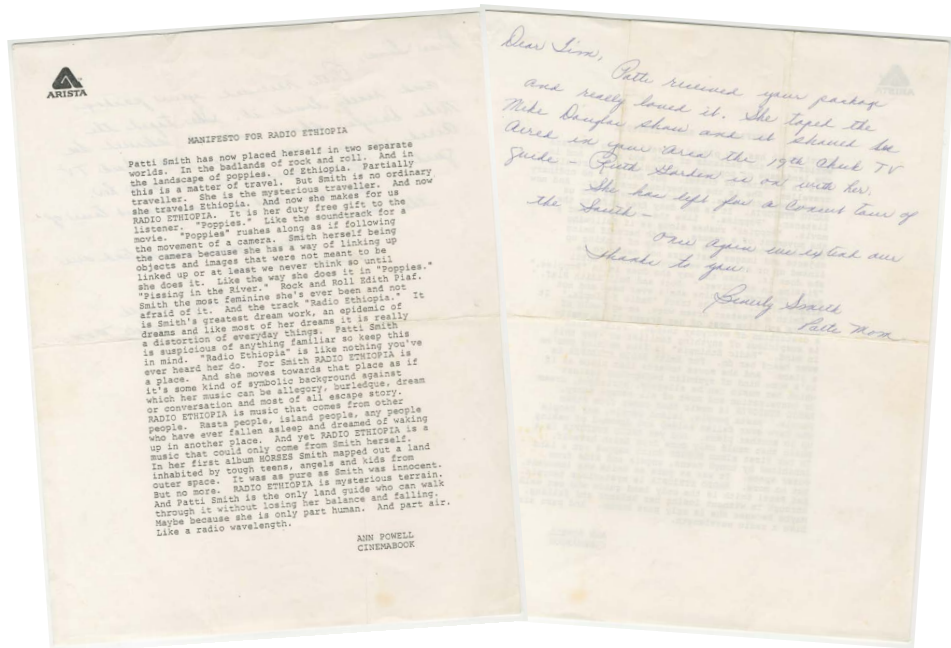 ARISTA
MANIFESTO FOR RADIO ETHIOPIA
Patti Smith has now placed herself in two separate
worlds. In the badlands of rock and roll. And in
the landscape of poppies. Of Ethiopia. Partially
this is a matter of travel. But Smith is no ordinary
traveller. She is the mysterious traveller. And now
she travels Ethiopia. And now she makes for us
RADIO ETHIOPIA. It is her duty free gift to the
listener. "Poppies." Like the soundtrack for a
movie. "Poppies" rushes along as if following
the movement of a camera. Smith herself being
the camera because she has a way of linking up
objects and images that were not meant to be
linked up or at least we never think so until
she does it. Like the way she does it in "Poppies."
"Pissing in the River." Rock and Roll Edith Piaf.
Smith the most feminine she's ever been and not
afraid of it. And the track "Radio Ethiopia." It
is Smith's greatest dream work, an epidemic of
dreams and like most of her dreams it is really
a distortion of everyday things. Patti Smith
is suspicious of anything familiar so keep this
in mind. "Radio Ethiopia" is like nothing you've
ever heard her do. For Smith RADIO ETHIOPIA is
a place. And she moves towards that place as if
it's some kind of symbolic background against
which her music can be allegory, burledque, dream
or conversation and most of all escape story.
RADIO ETHIOPIA is music that comes from other
people. Rasta people, island people, any people
who have ever fallen asleep and dreamed of waking
up in another place. And yet RADIO ETHIOPIA is a
music that could only come from Smith herself.
In her first album HORSES Smith mapped out a land
inhabited by tough teens, angels and kids from
outer space. It was as pure as Smith was innocent.
But no more. RADIO ETHIOPIA is mysterious terrain.
And Patti Smith is the only land guide who can walk
through it without losing her balance and falling.
Maybe because she is only part human. And part air.
Like a radio wavelength.
ANN POWELL
CINEMABOOK
Dear Tim,
Patti received your package
and really loved it. She taped the
Mike Douglas show and it should be
aired in your area the 19th Check TV
guide - Ruth Gordon is on with her.
She has left for a Comeing tour of
the South -
once again we extend our
thanks to you
Beverly Smith
Patti Mom